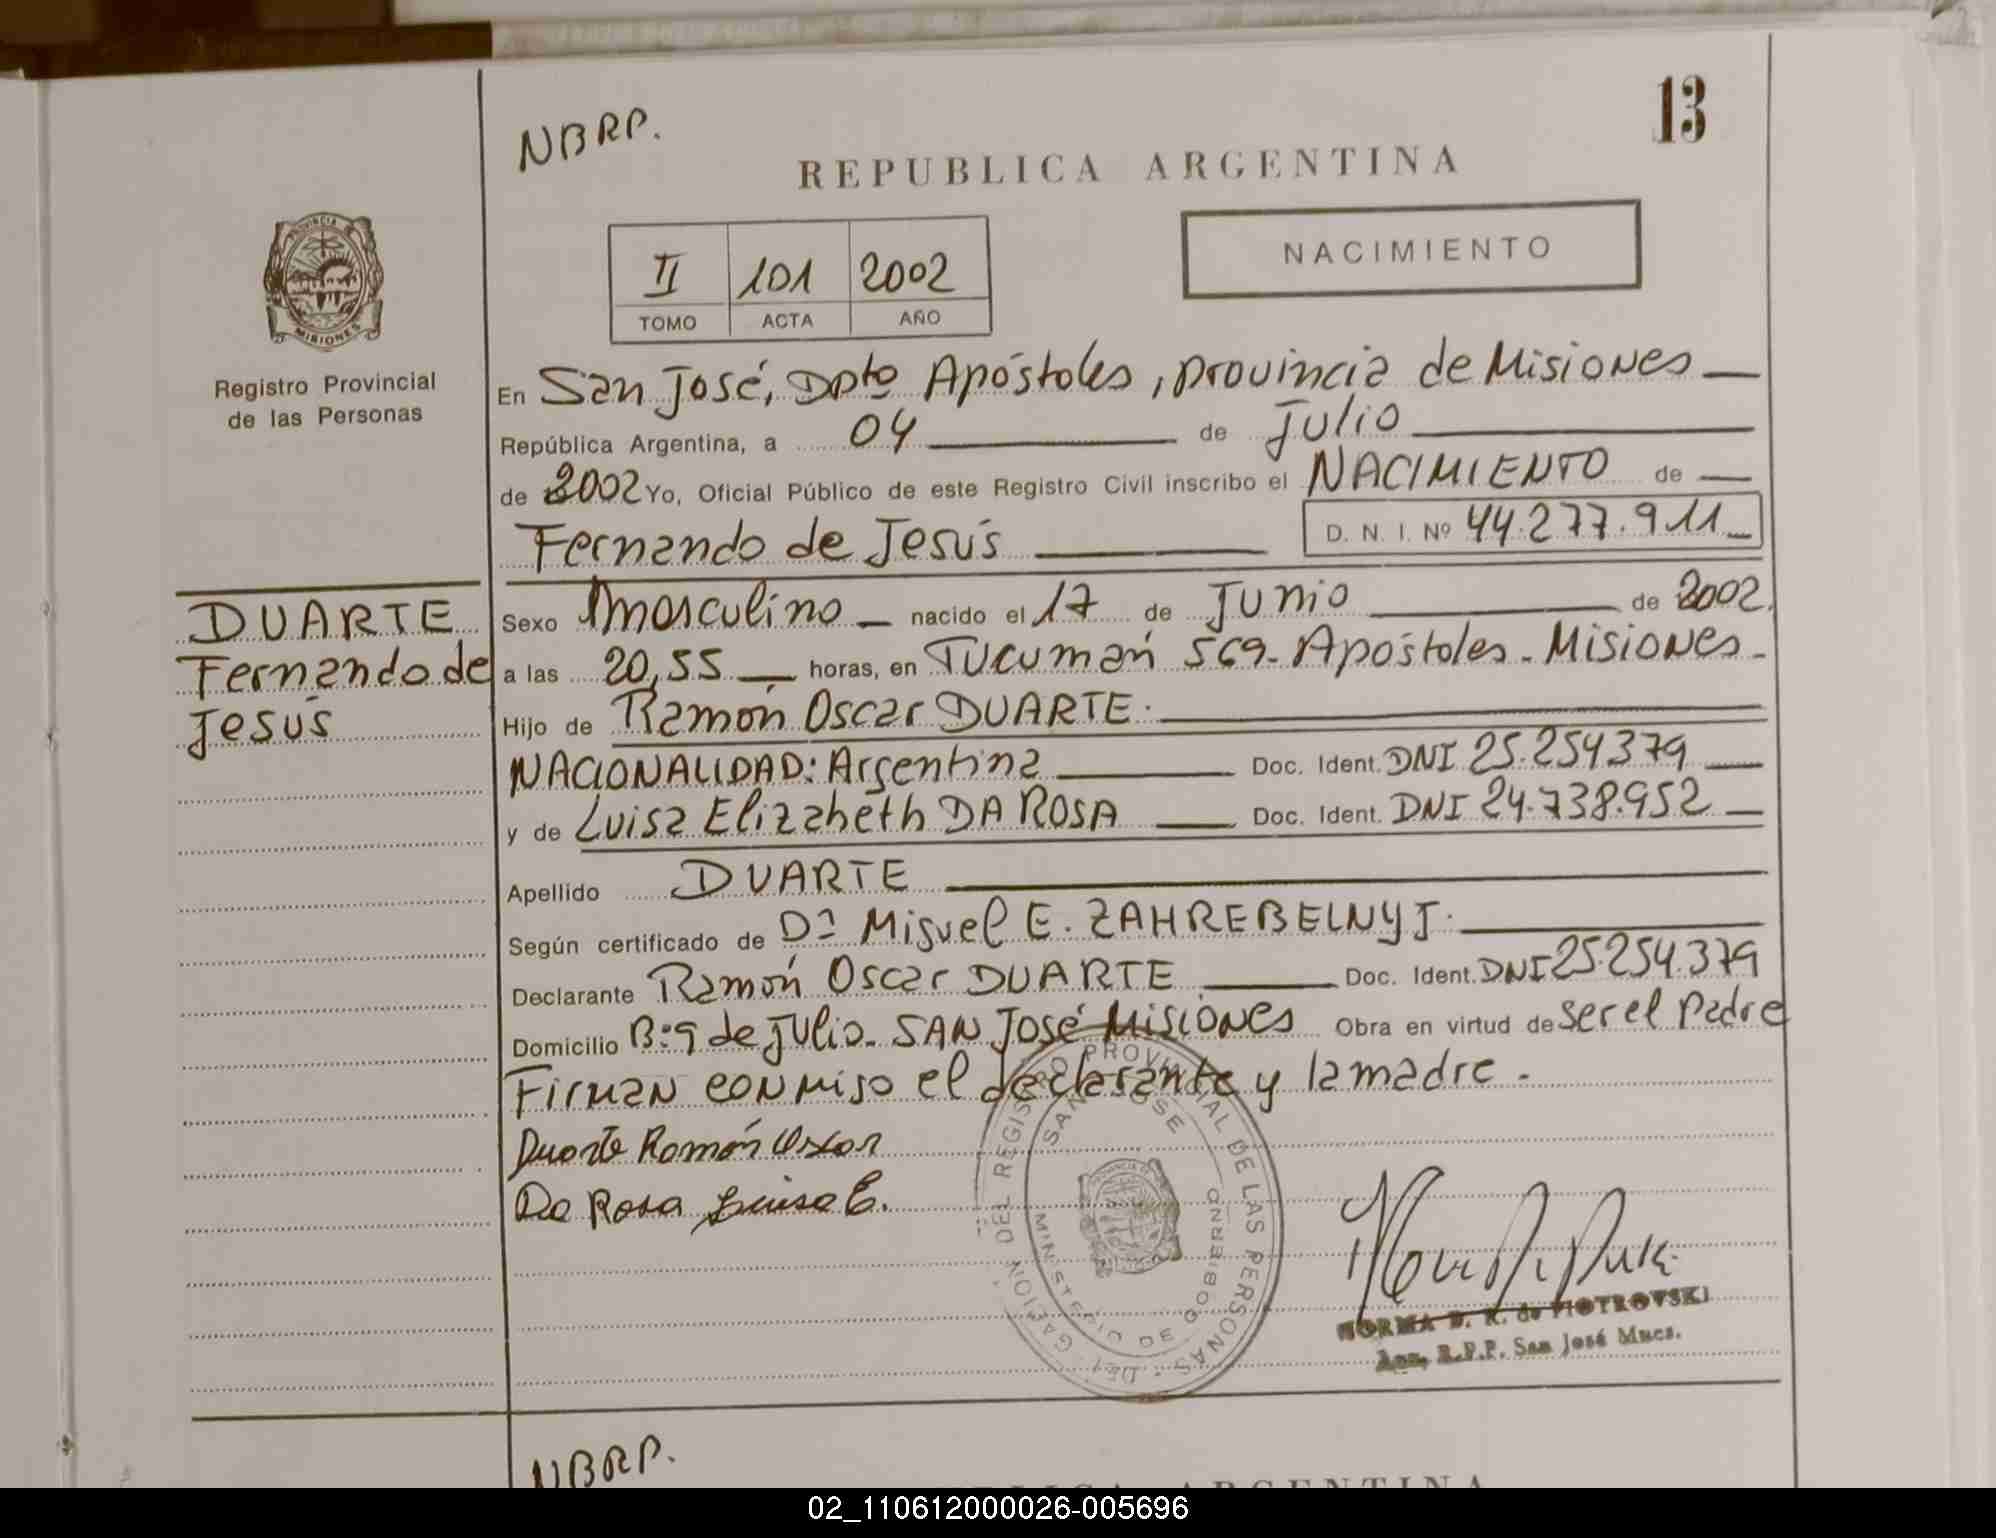 NBRP.
13
REPUBLICA ARGENTINA
PROVINCIA DE
MISIONES
Registro Provincial
de las Personas
II 101 2002
TOMO ACTA AÑO
NACIMIENTO
En San José, Dpto Apóstoles, provincia de Misiones
República Argentina, a 04 de Julio
de 2002 Yo, Oficial Público de este Registro Civil inscribo el NACIMIENTO de
Fernando de Jesús D. N. I. Nº 44.277.911
DUARTE
Fernando de
Jesús
Sexo masculino nacido el 17 de Junio de 2002.
a las 20,55 horas, en Tucumán 569-Apóstoles-Misiones-
Hijo de Ramón Oscar DUARTE.
NACIONALIDAD: Argentina Doc. Ident. DNI 25.254379
y de Luisa Elizabeth DA ROSA Doc. Ident. DNI 24.738.952
Apellido DUARTE
Según certificado de Dr Miguel E. ZAHREBELNYJ.
Declarante Ramón Oscar DUARTE Doc. Ident. DNI 25.254.379
Domicilio B:9 de Julio-SAN José Misiones Obra en virtud de ser el padre
Firman conmigo el declarante y la madre.
Duarte Ramón Oscar
Da Rosa Luisa E.
DEL REGISTRO PROVINCIAL DE LAS PERSONAS
SAN JOSE
MINISTERIO DE GOBIERNO
NORMA D. R. de PIOTROVSKI
R.P.P. San José Mnes.
NBRP.
REPUBLICA ARGENTINA
02_110612000026-005696